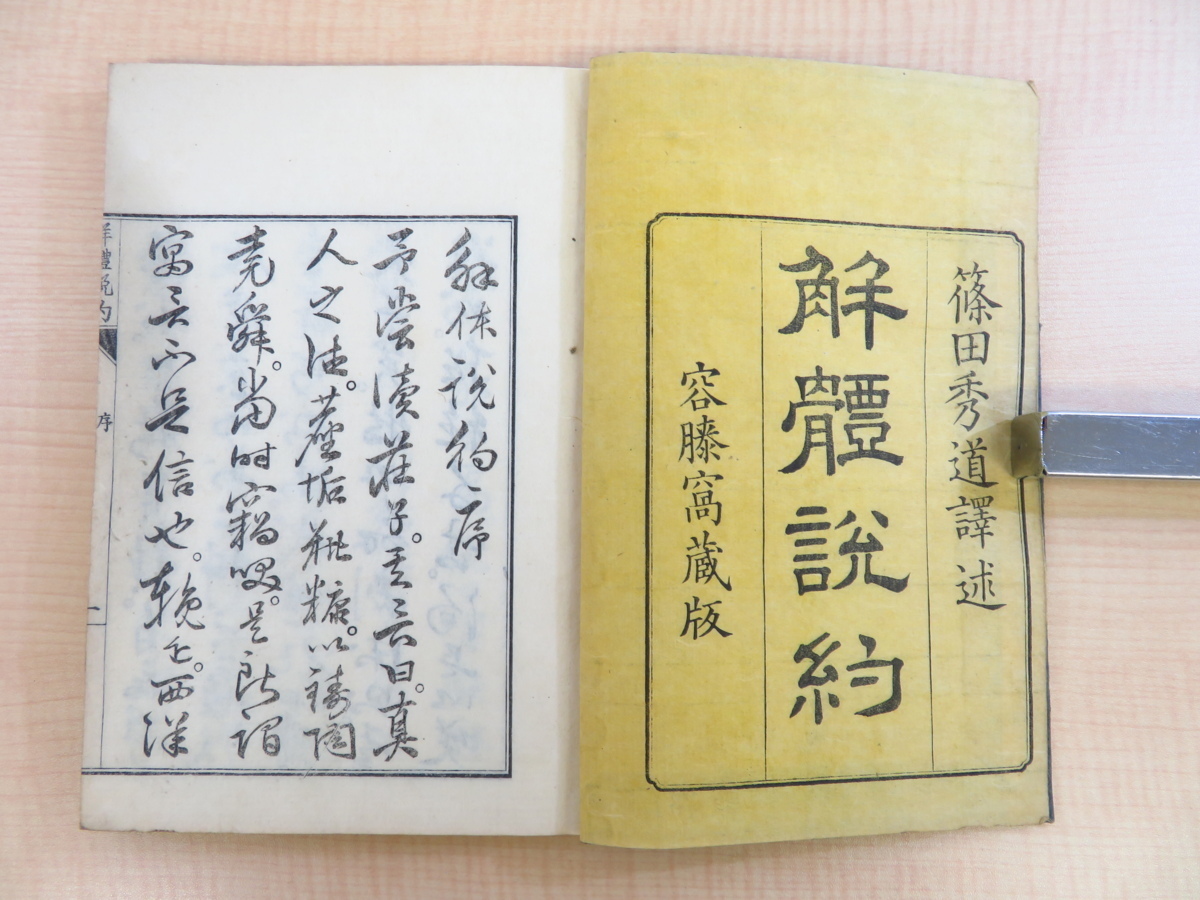 篠田秀道譯述
解體說約
容膝窩蔵版
解体說約序
予嘗讀荘子。其言曰。真
人之法。塵垢粃糠。以鑄陶
堯舜。當時竊哂。是所謂
寓言不足信也。輓近。西洋
解體說約
序
一